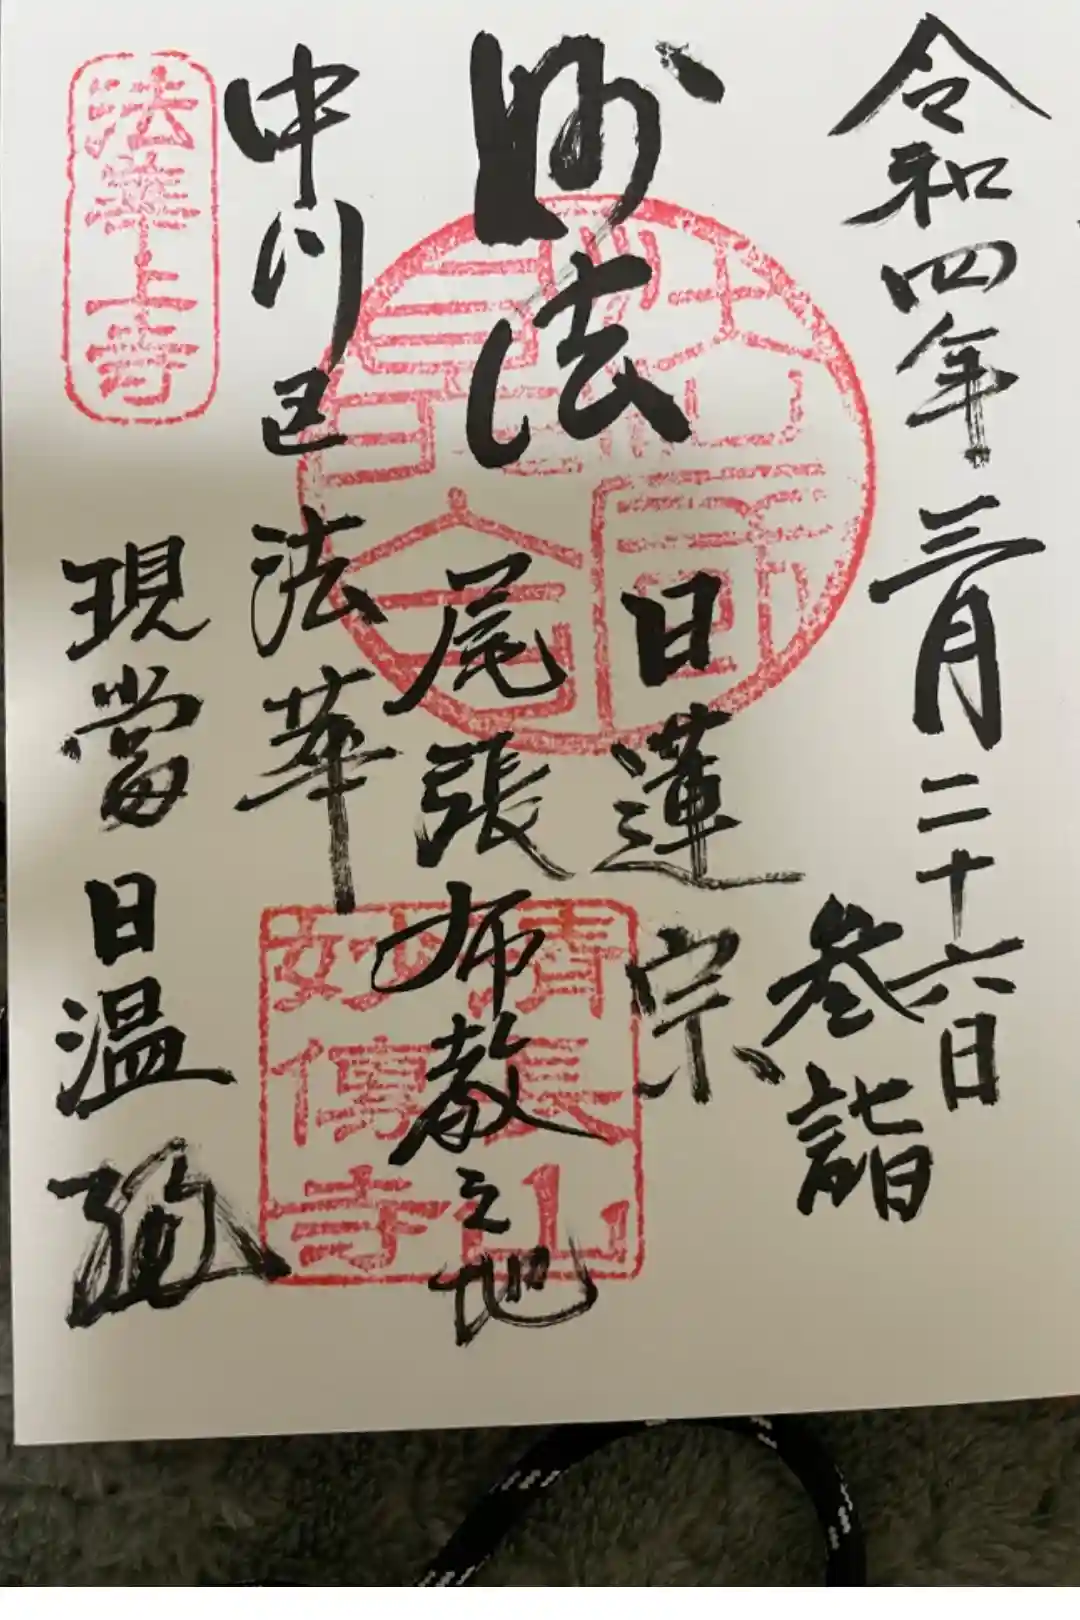 令和四年三月二十六日
参詣
日蓮宗
妙法
尾張布教之地
中川区
法華
現當
日温
法華上寺
清長山
妙傳寺